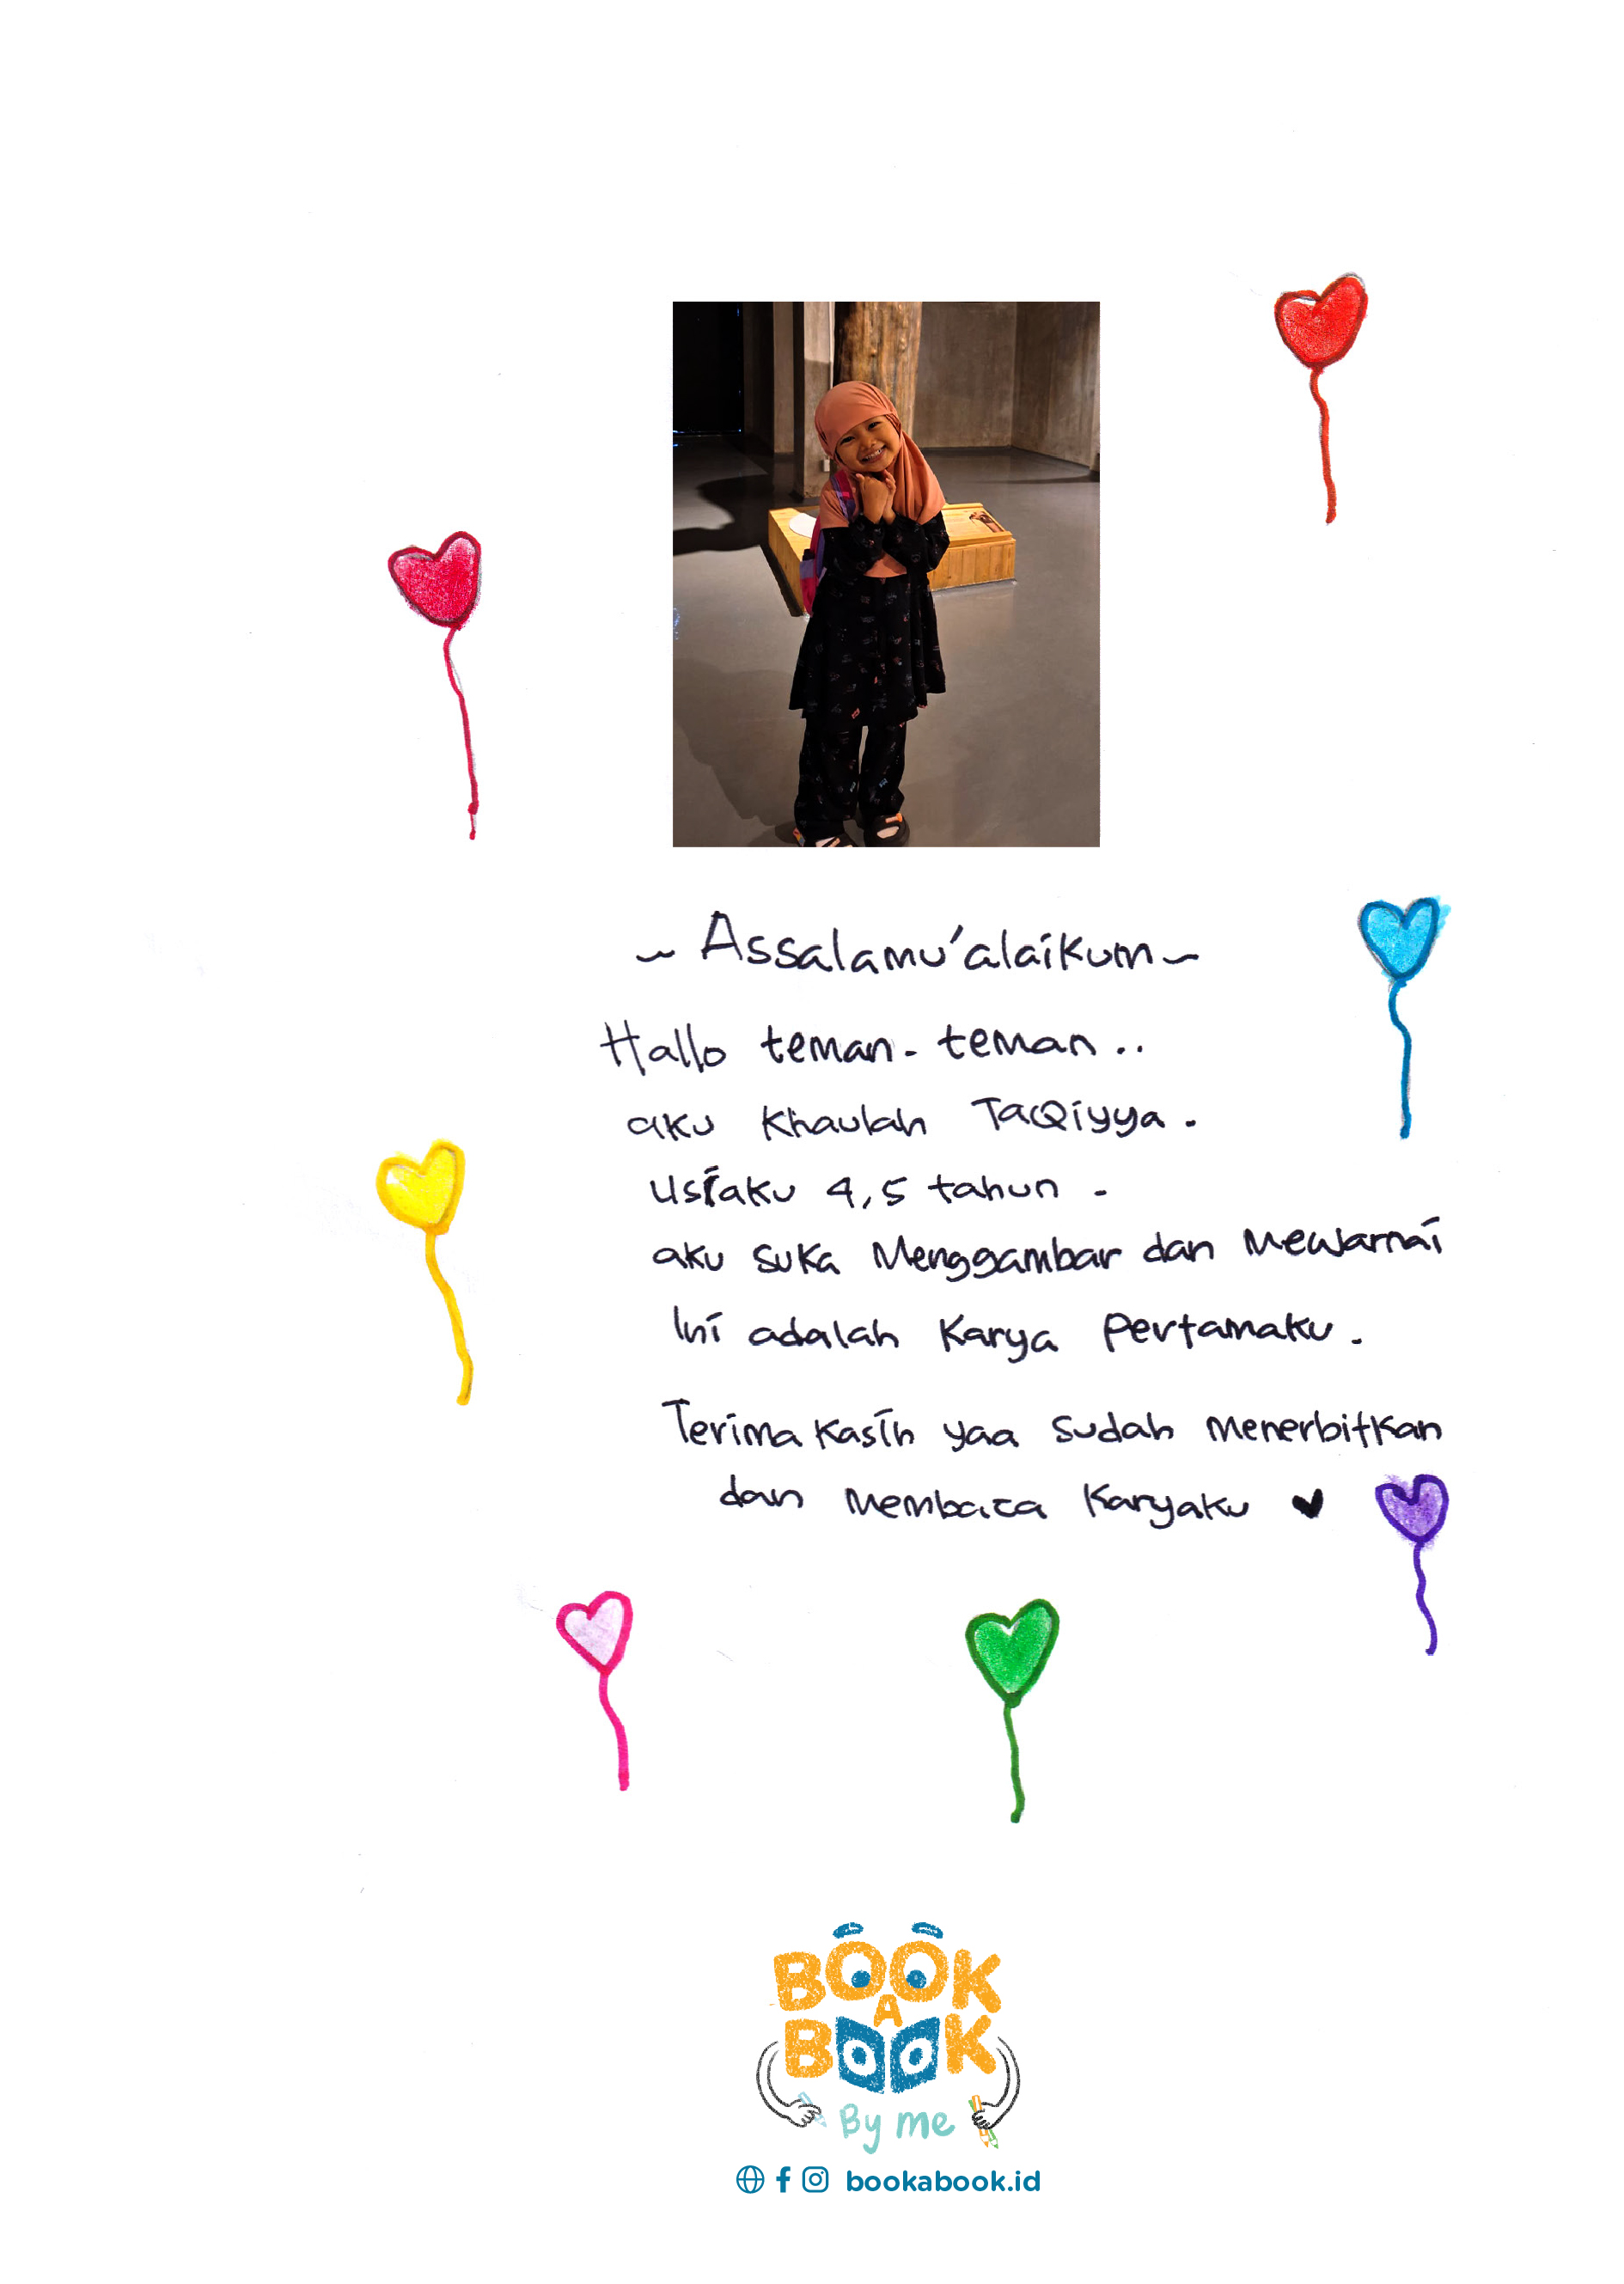 ~ Assalamu'alaikum ~
Hallo teman - teman ..
aku Khaulah TaQiyya .
Usiaku 4,5 tahun .
aku suka Menggambar dan Mewarnai
Ini adalah Karya Pertamaku .
Terima Kasih yaa Sudah Menerbitkan
dan Membaca Karyaku ♥
BOOK
A
BOOK
By me
bookabook.id